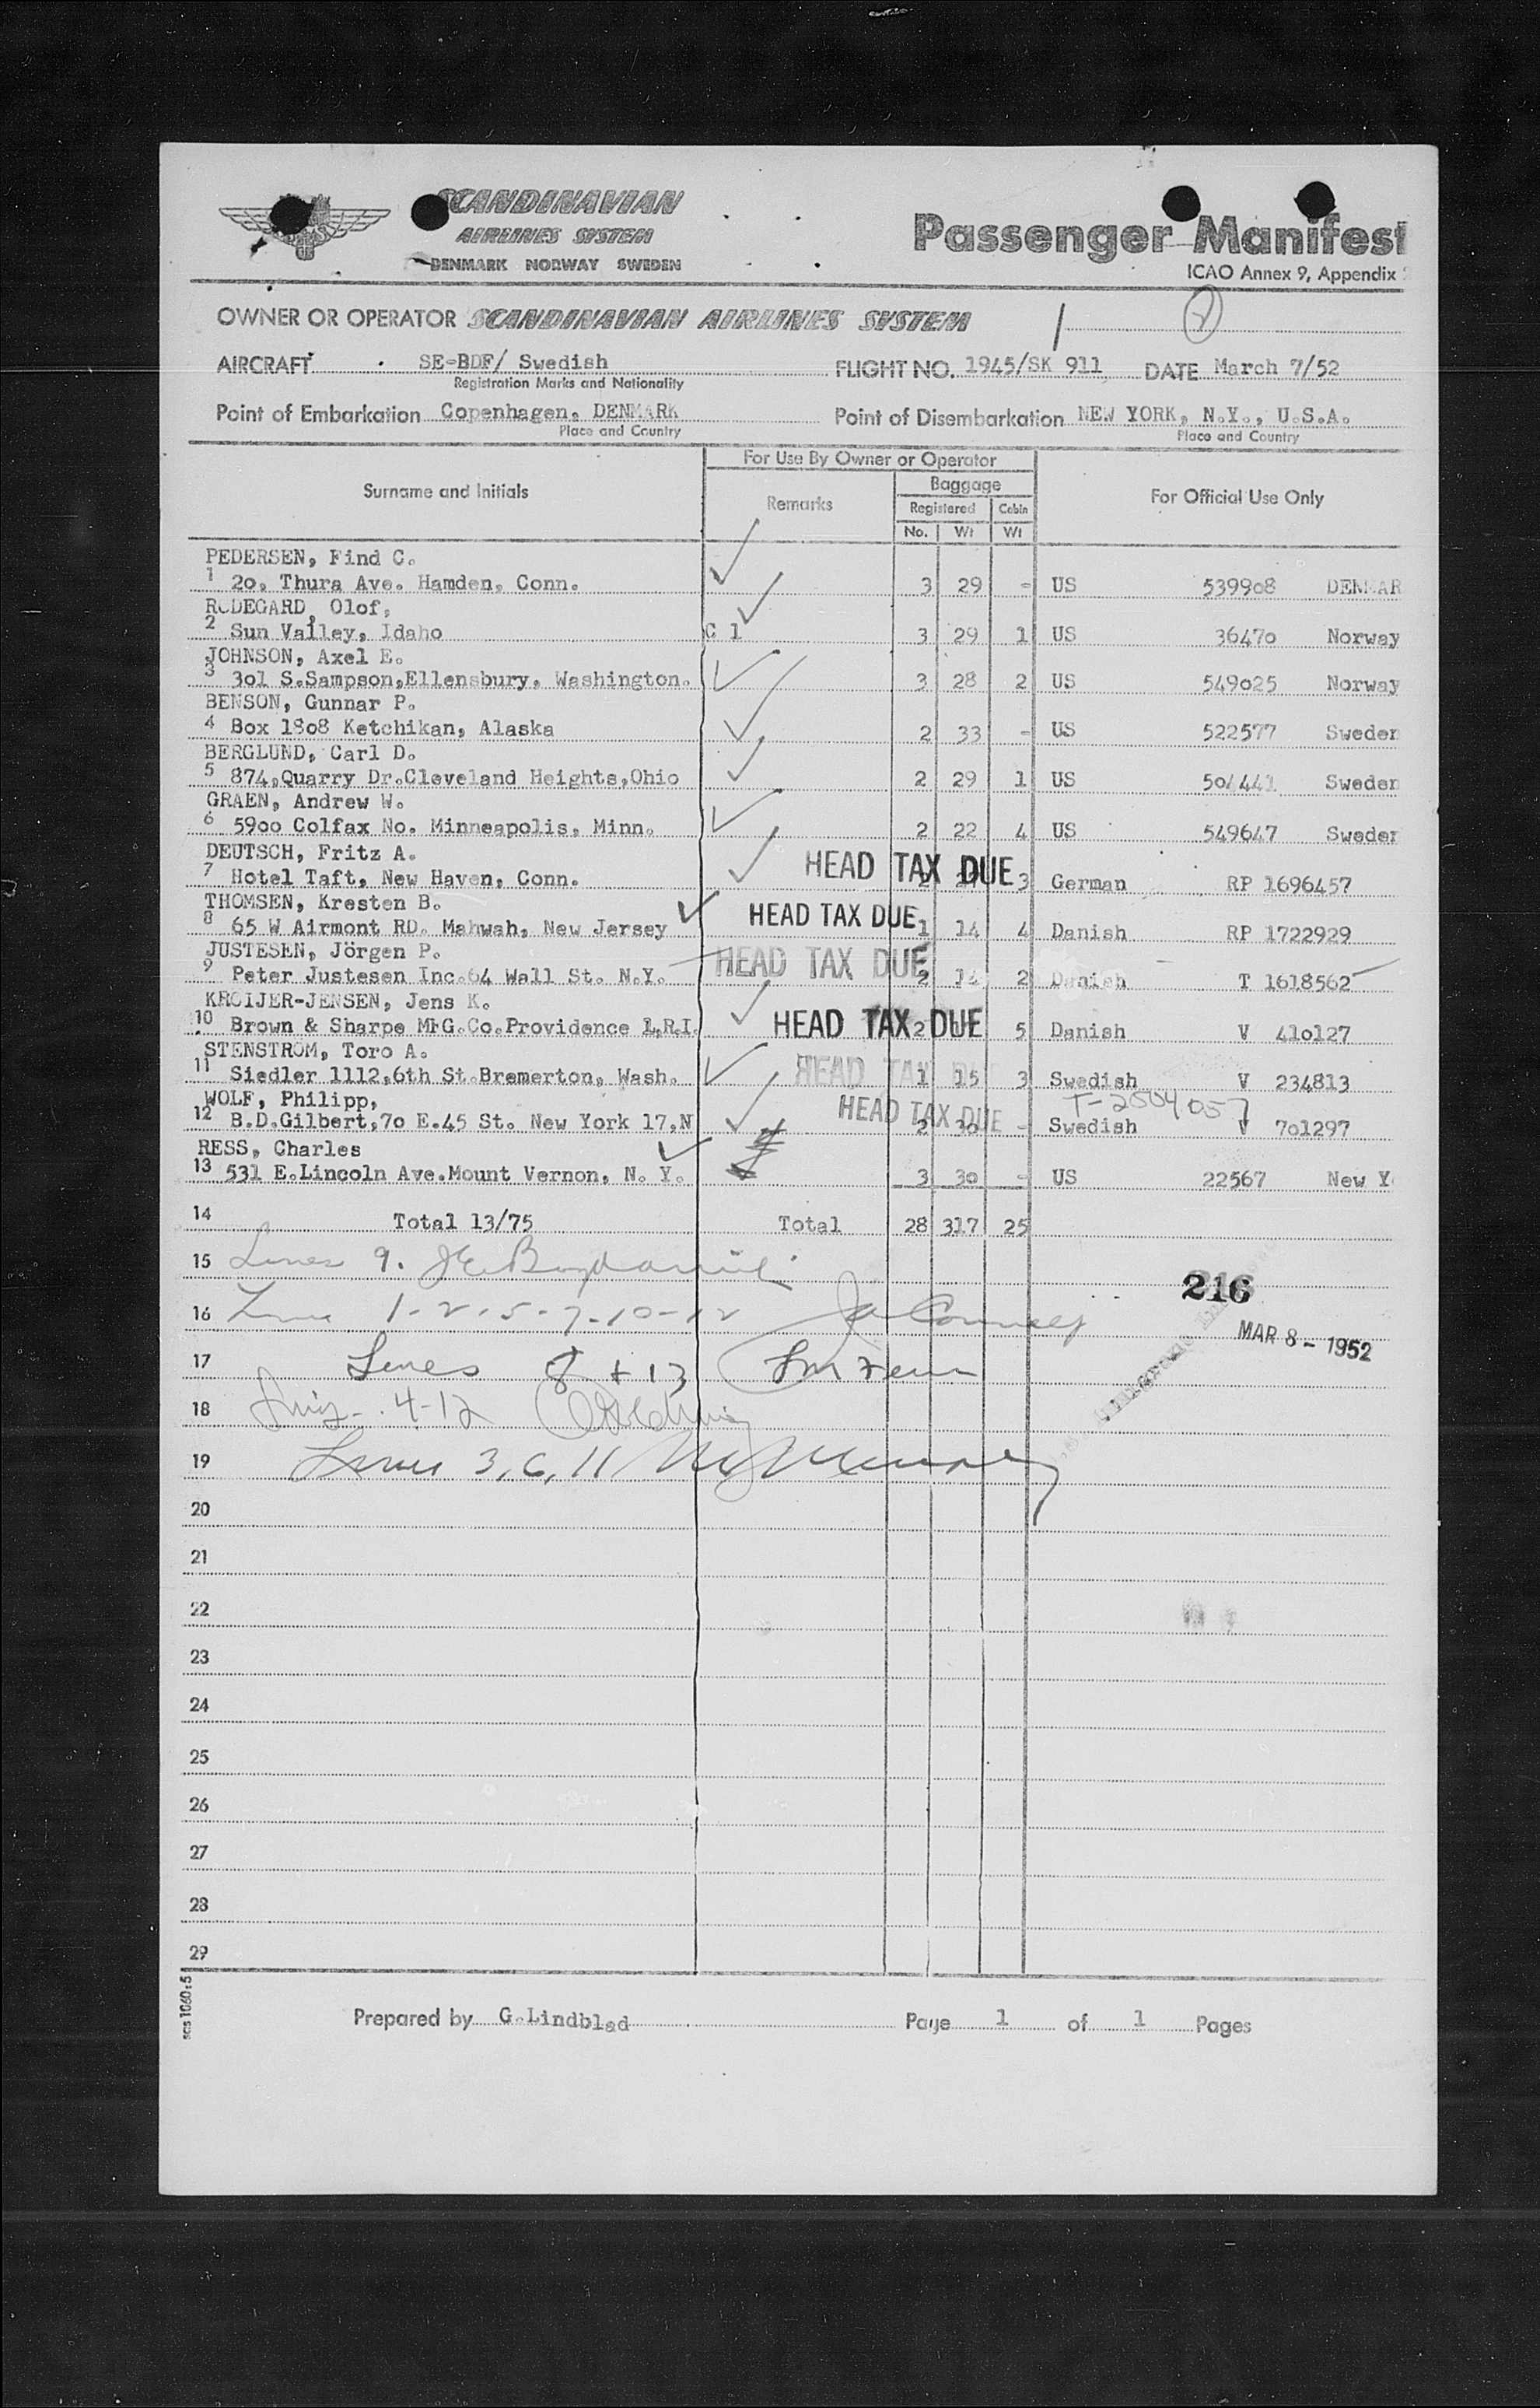 SCANDINAVIAN
AIRLINES SYSTEM
DENMARK NORWAY SWEDEN
Passenger Manifest
ICAO Annex 9, Appendix
OWNER OR OPERATOR SCANDINAVIAN AIRLINES SYSTEM
AIRCRAFT SE-BDF/ Swedish FLIGHT NO. 1945/SK 911 DATE March 7/52
Registration Marks and Nationality
Point of Embarkation Copenhagen, DENMARK Point of Disembarkation NEW YORK, N.Y., U.S.A.
Place and Country Place and Country
For Use By Owner or Operator
Surname and Initials Remarks Baggage For Official Use Only
Registered Cabin
No. Wt Wt
PEDERSEN, Find C.
1 20, Thura Ave. Hamden, Conn. 3 29 - US 539908 DENMAR
RODEGARD, Olof,
2 Sun Valley, Idaho C 1 3 29 1 US 36470 Norway
JOHNSON, Axel E.
3 301 S.Sampson,Ellensbury, Washington. 3 28 2 US 549025 Norway
BENSON, Gunnar P.
4 Box 1808 Ketchikan, Alaska 2 33 - US 522577 Sweden
BERGLUND, Carl D.
5 874,Quarry Dr.Cleveland Heights,Ohio 2 29 1 US 504441 Sweden
GRAEN, Andrew W.
6 5900 Colfax No. Minneapolis, Minn. 2 22 4 US 549647 Sweden
DEUTSCH, Fritz A.
7 Hotel Taft, New Haven, Conn. HEAD TAX DUE 3 German RP 1696457
THOMSEN, Kresten B.
8 65 W Airmont RD. Mahwah, New Jersey HEAD TAX DUE 1 14 4 Danish RP 1722929
JUSTESEN, Jörgen P.
9 Peter Justesen Inc.64 Wall St. N.Y. HEAD TAX DUE 2 14 2 Danish T 1618562
KROIJER-JENSEN, Jens K.
10 Brown & Sharpe MFG.Co.Providence 1,R.I. HEAD TAX DUE 2 5 Danish V 410127
STENSTROM, Toro A.
11 Siedler 1112,6th St.Bremerton, Wash. HEAD TAX D 1 15 3 Swedish V 234813
WOLF, Philipp, T-2504057
12 B.D.Gilbert,70 E.45 St. New York 17,N HEAD TAX DUE 2 30 - Swedish V 701297
RESS, Charles
13 531 E.Lincoln Ave.Mount Vernon, N. Y. 3 30 - US 22567 New Y
14 Total 13/75 Total 28 317 25
15 Lines 9.
216
16 Line 1-2-5-7-10-12
MAR 8 - 1952
17 Lines 8 + 13
18 4-12
19 Lines 3, 6, 11
20
21
22
23
24
25
26
27
28
29
sas 1060:5
Prepared by G.Lindblad Page 1 of 1 Pages